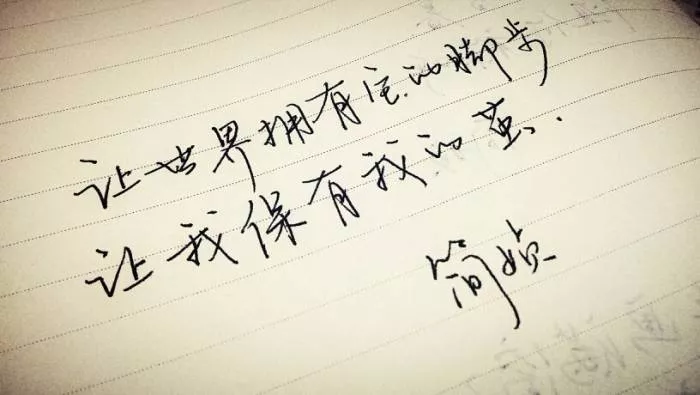 让世界拥有它的脚步
让我保有我的茧.
简媜